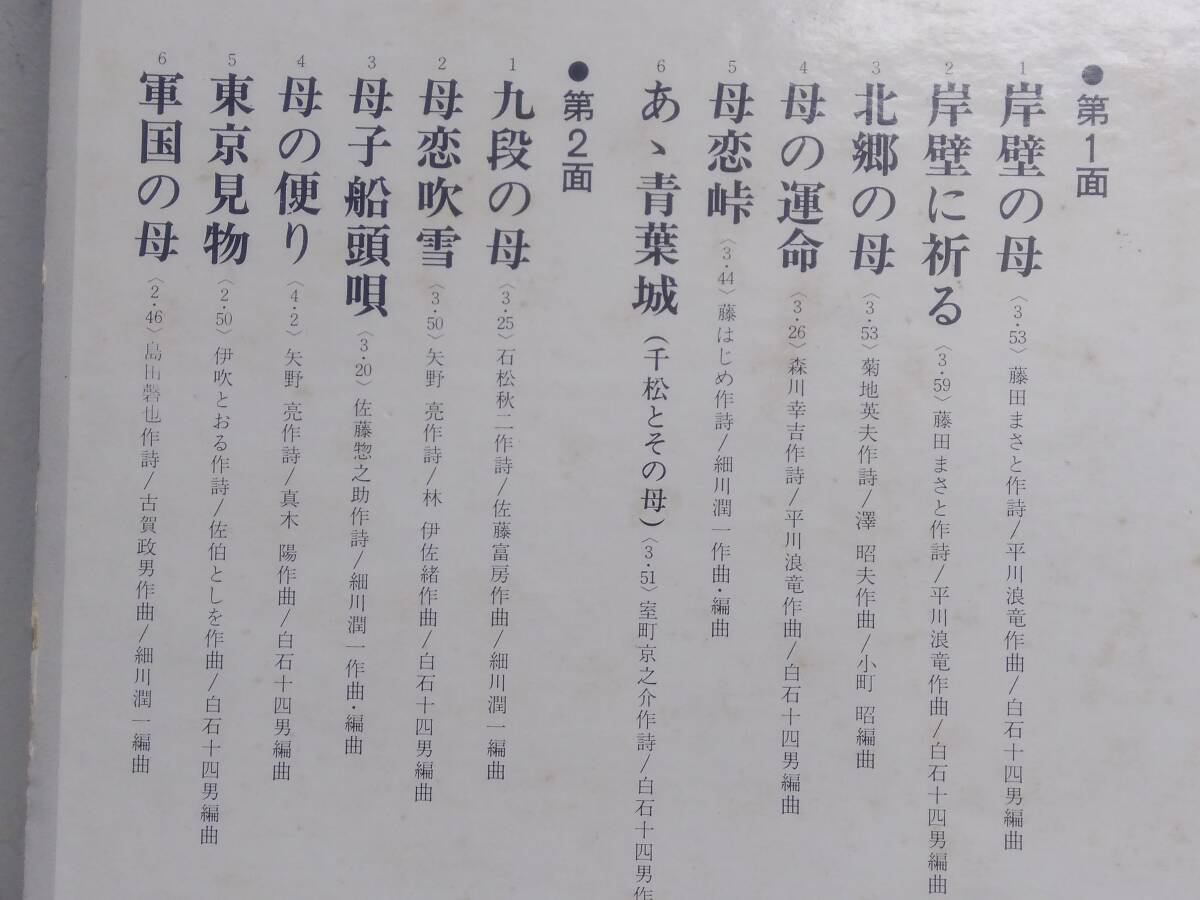 ●第1面
1 岸壁の母〈3・53〉藤田まさと作詩/平川浪竜作曲/白石十四男編曲
2 岸壁に祈る〈3・59〉藤田まさと作詩/平川浪竜作曲/白石十四男編曲
3 北郷の母〈3・53〉菊地英夫作詩/澤 昭夫作曲/小町 昭編曲
4 母の運命〈3・26〉森川幸吉作詩/平川浪竜作曲/白石十四男編曲
5 母恋峠〈3・44〉藤はじめ作詩/細川潤一作曲・編曲
6 あゝ青葉城(千松とその母)〈3・51〉室町京之介作詩/白石十四男作
●第2面
1 九段の母〈3・25〉石松秋二作詩/佐藤富房作曲/細川潤一編曲
2 母恋吹雪〈3・50〉矢野 亮作詩/林 伊佐緒作曲/白石十四男編曲
3 母子船頭唄〈3・20〉佐藤惣之助作詩/細川潤一作曲・編曲
4 母の便り〈4・2〉矢野 亮作詩/真木 陽作曲/白石十四男編曲
5 東京見物〈2・50〉伊吹とおる作詩/佐伯としを作曲/白石十四男編曲
6 軍国の母〈2・46〉島田磬也作詩/古賀政男作曲/細川潤一編曲